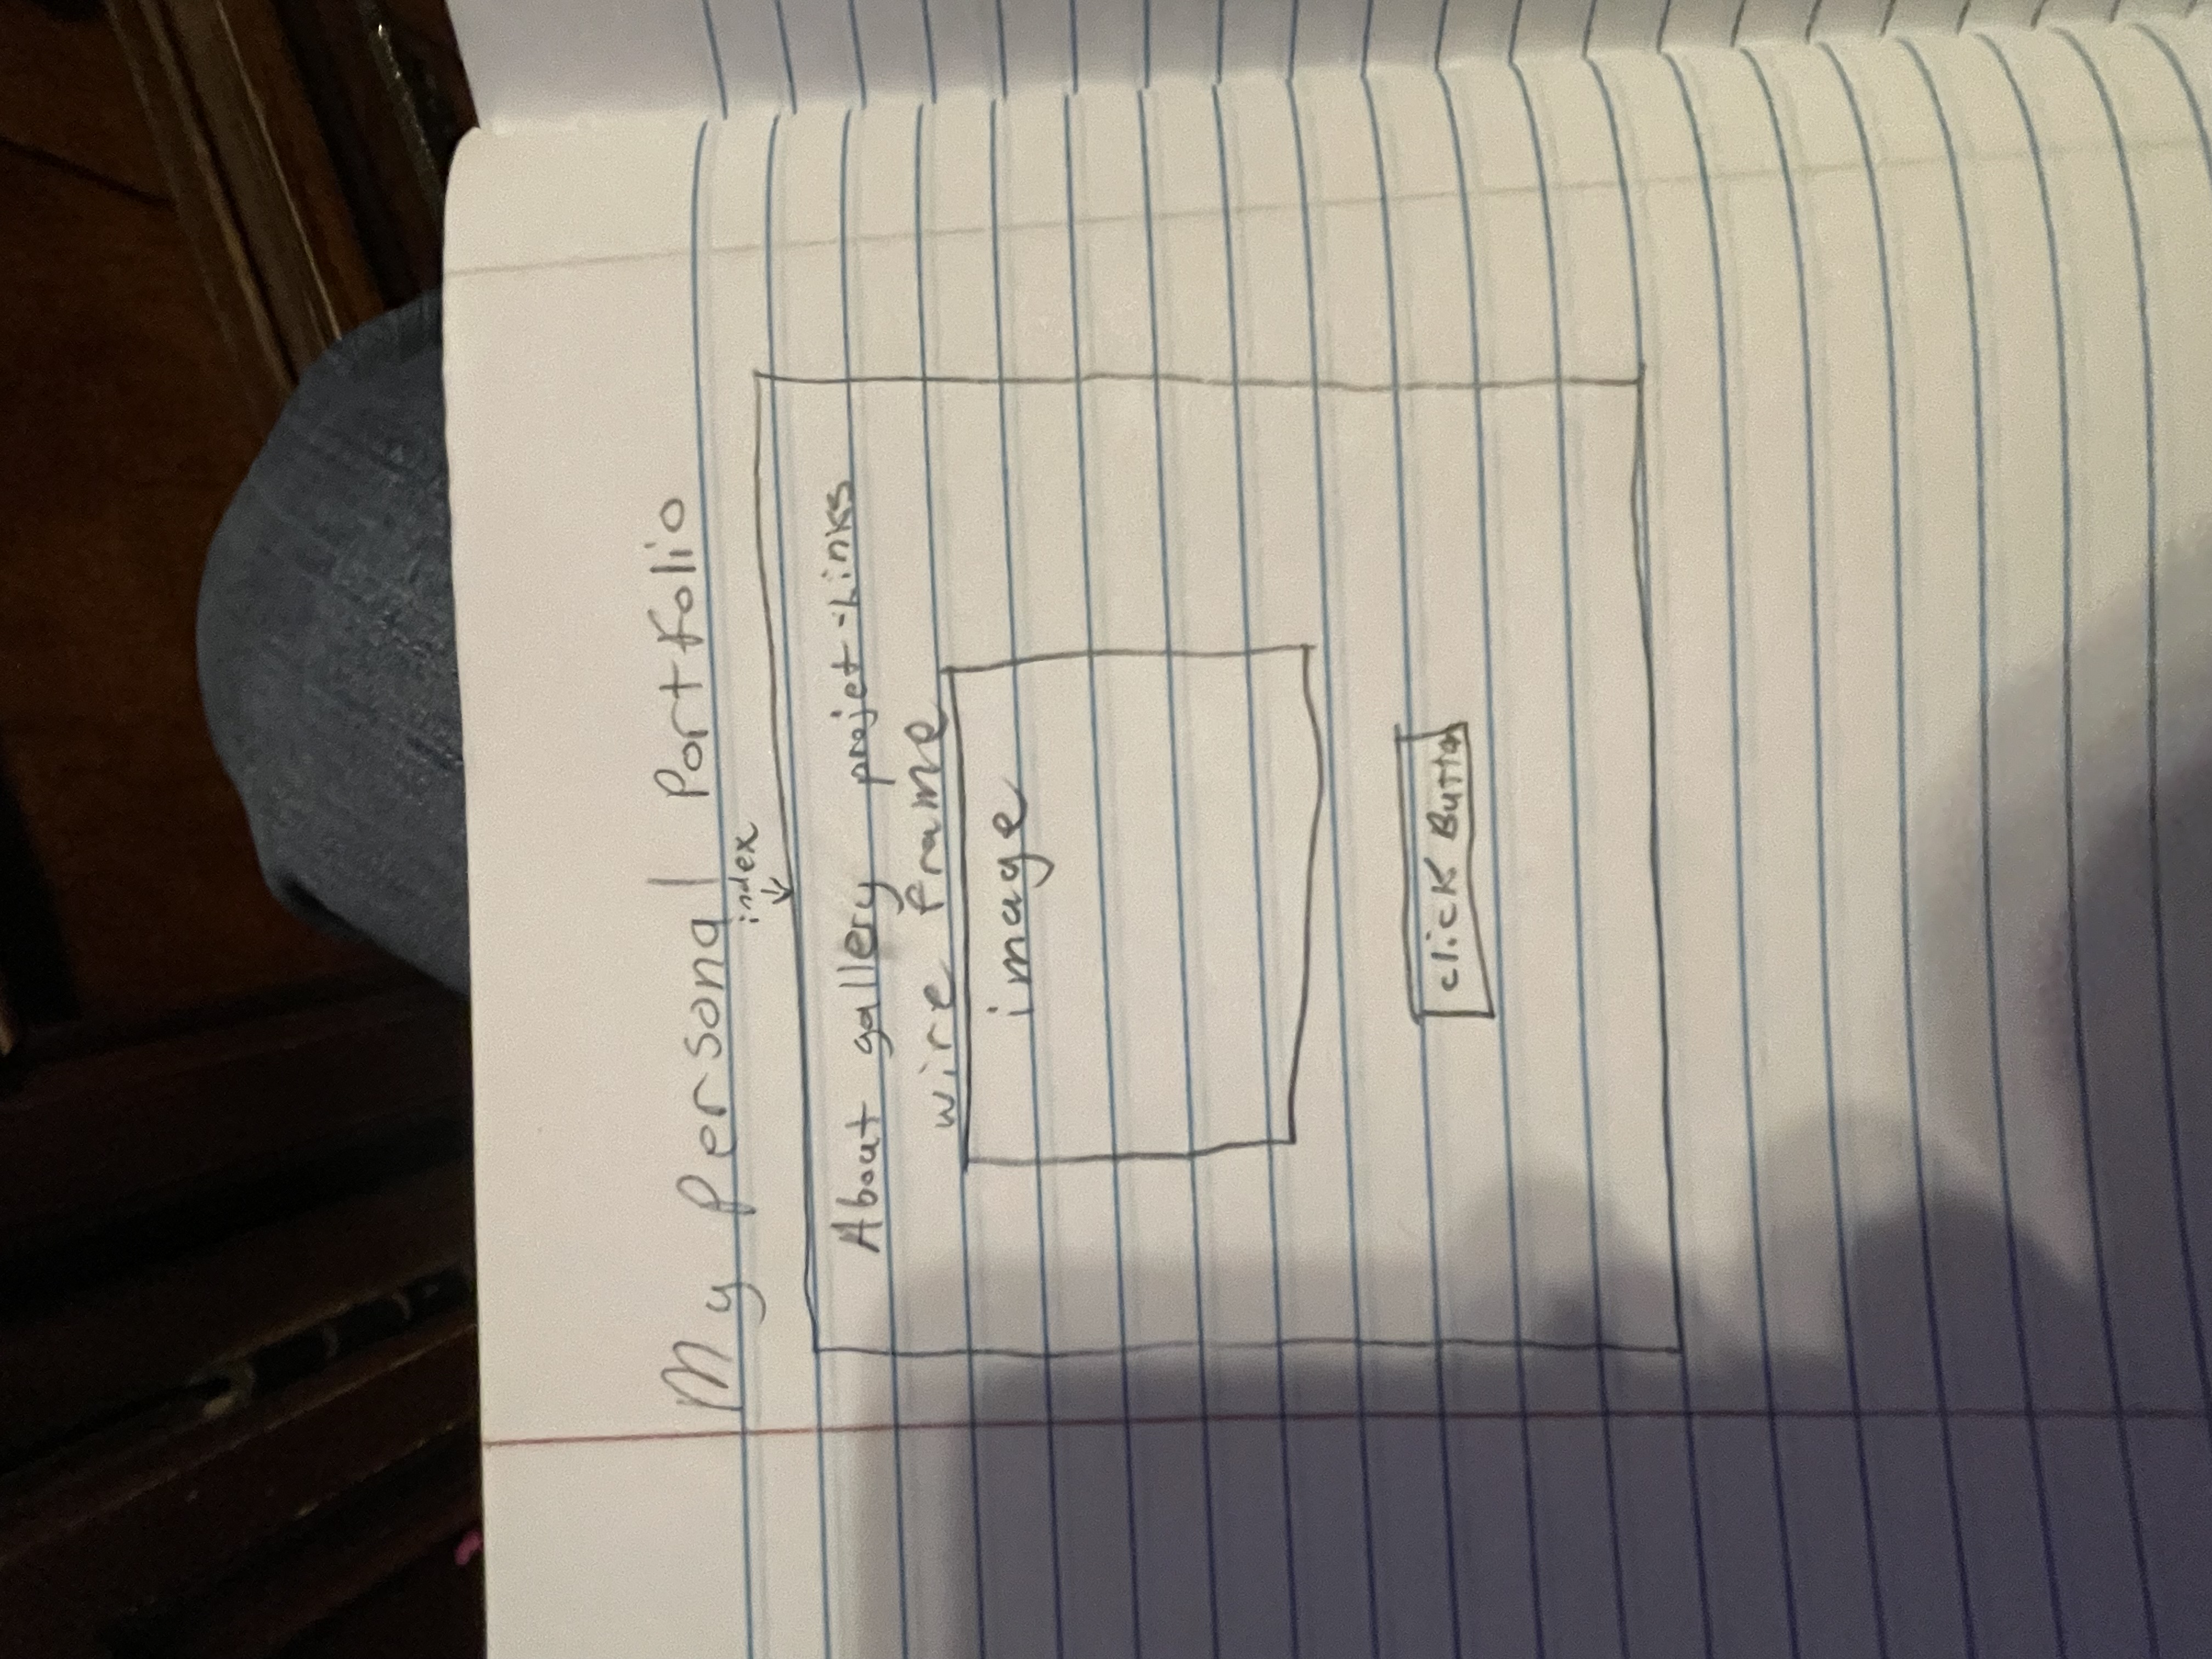 My Personal Portfolio
index
About gallery projet-Links
wire frame
image
click Button